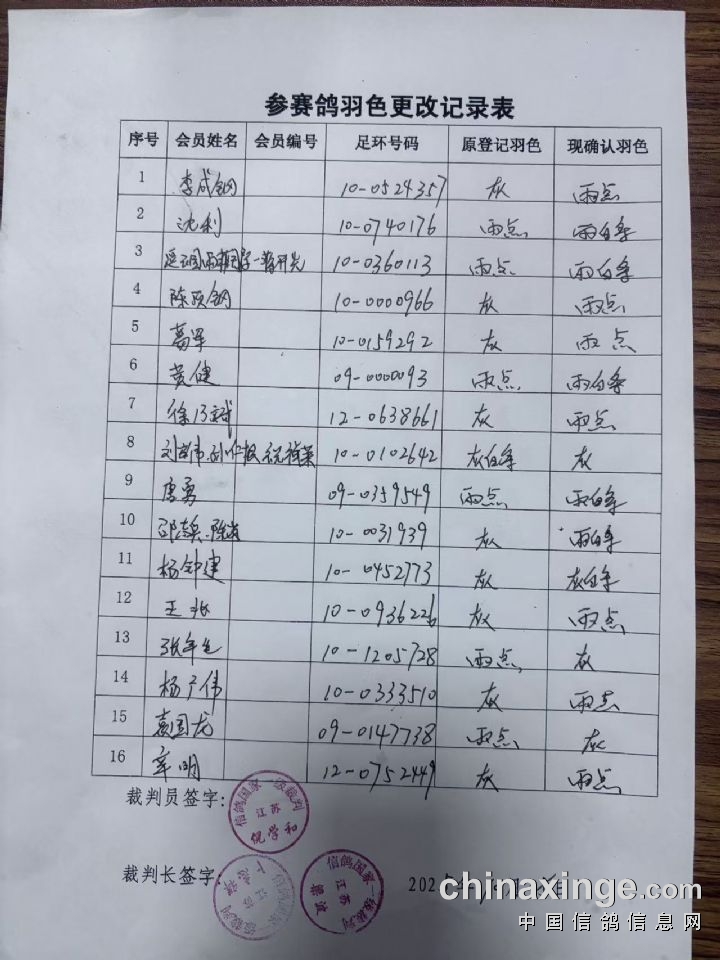 参赛鸽羽色更改记录表
序号 会员姓名 会员编号 足环号码 原登记羽色 现确认羽色
1 李成钢 10-0524357 灰 雨点
2 沈利 10-0740176 雨点 雨白条
3 10-0360113 雨点 雨白条
4 陈 钢 10-0000966 灰 雨点
5 葛军 10-0159292 灰 雨点
6 黄健 09-0000093 雨点 雨白条
7 徐 斌 12-0638661 灰 雨点
8 10-0102642 灰白条 灰
9 唐勇 09-0359549 雨点 雨白条
10 10-0031939 灰 雨白条
11 杨钟建 10-0452773 灰 灰白条
12 王兆 10-0936226 灰 雨点
13 张年生 10-1205728 雨点 灰
14 杨广伟 10-0333510 灰 雨点
15 袁国龙 09-0147738 雨点 灰
16 章明 12-0752449 灰 雨点
裁判员签字:
信鸽国家一级裁判
江苏
倪学和
裁判长签字:
信鸽国家一级裁判
江苏
202
chinaxinge.com
中国信鸽信息网